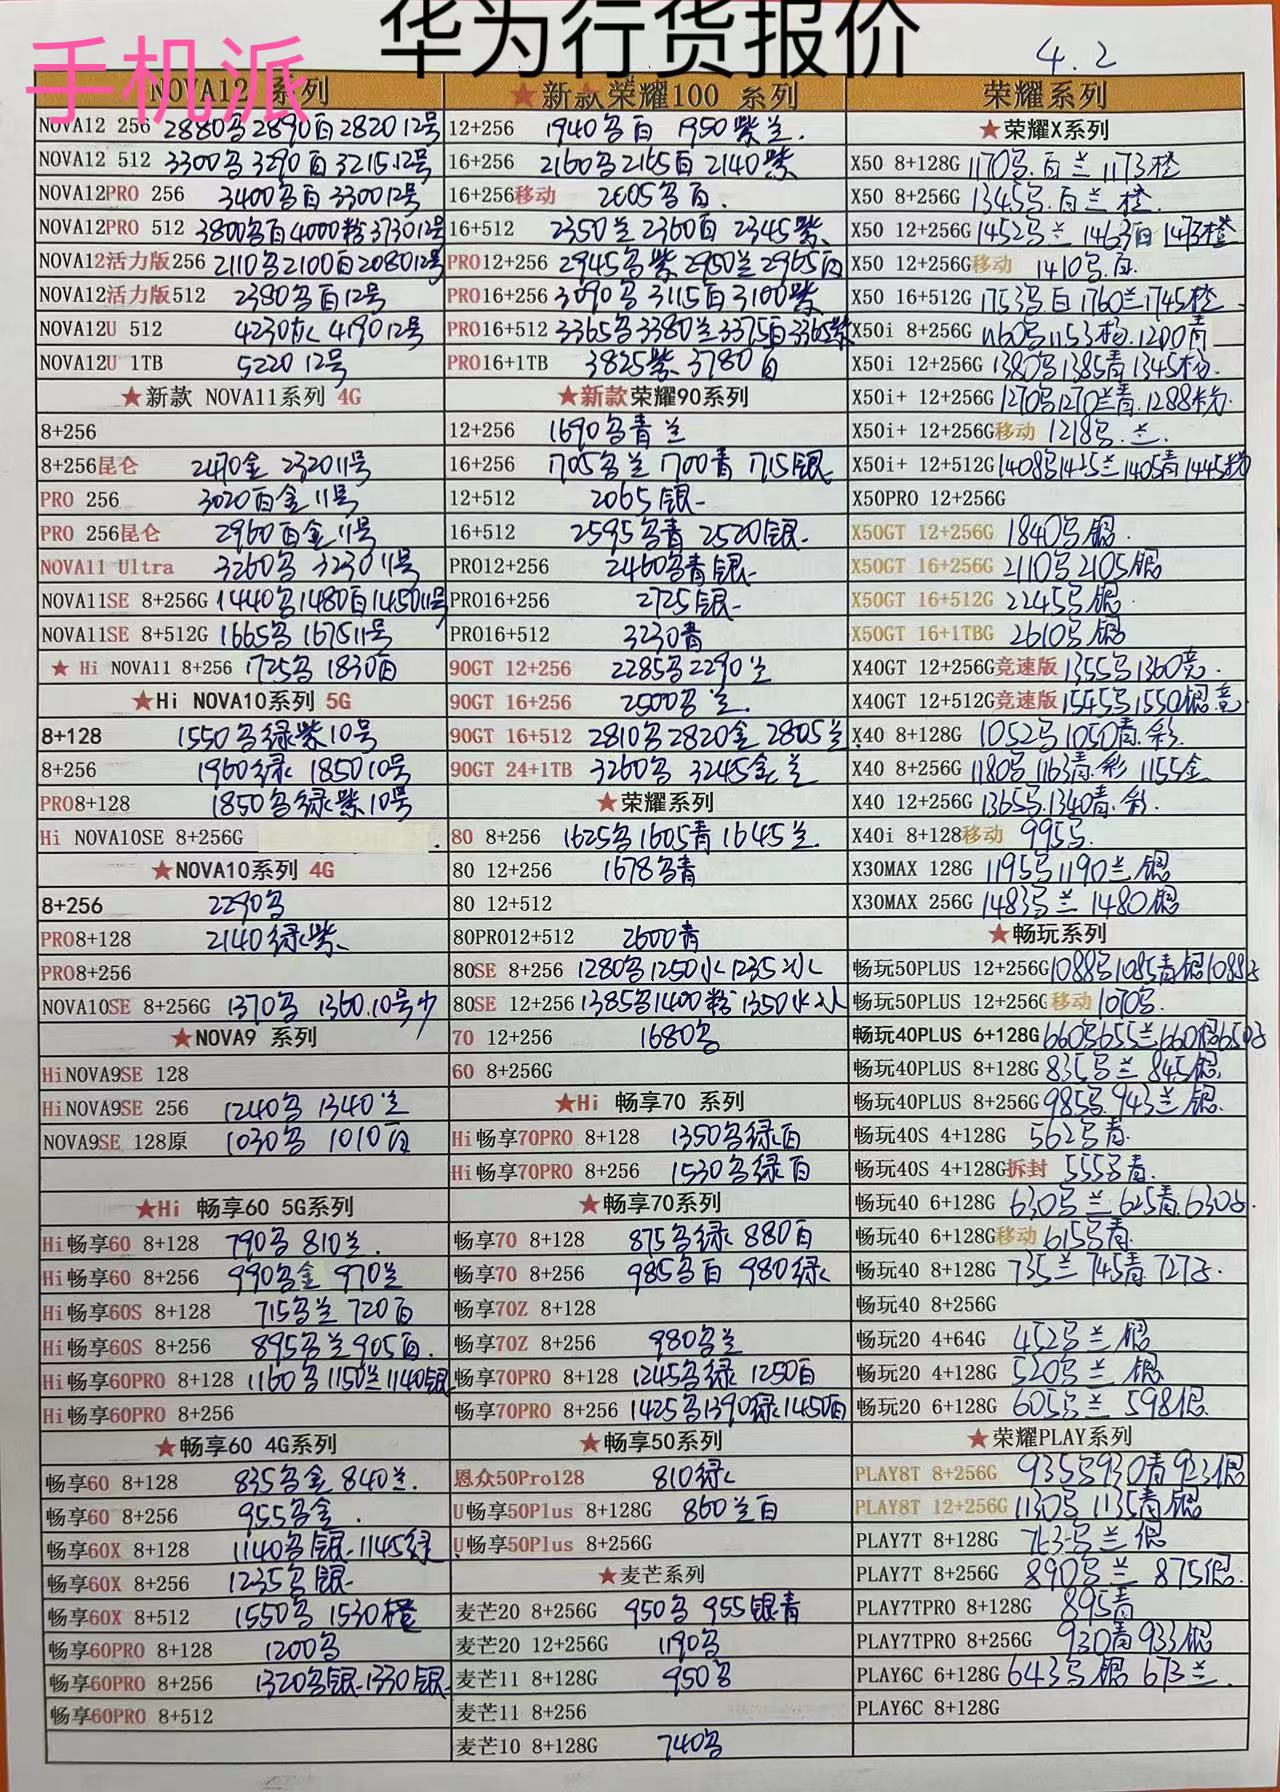 华为行货报价
手机派
4.2
NOVA12 系列
NOVA12 256 2880黑2890白2820 12号
NOVA12 512 3300黑3290白3215 12号
NOVA12PRO 256 3400黑白3300 12号
NOVA12PRO 512 3800黑白4000粉3730 12号
NOVA12活力版256 2110黑2100白2080 12号
NOVA12活力版512 2380黑白12号
NOVA12U 512 4230灰 4190 12号
NOVA12U 1TB 5220 12号
★新款 NOVA11系列 4G
8+256
8+256昆仑 2470金 2320 11号
PRO 256 3020白金 11号
PRO 256昆仑 2960白金11号
NOVA11 Ultra 3260黑 3230 11号
NOVA11SE 8+256G 1440黑1480白1450 11号
NOVA11SE 8+512G 1665黑 1675 11号
★ Hi NOVA11 8+256 1725黑 1830白
★Hi NOVA10系列 5G
8+128 1550黑绿紫10号
8+256 1960绿 1850 10号
PRO8+128 1850黑绿紫10号
Hi NOVA10SE 8+256G
★NOVA10系列 4G
8+256 2290黑
PRO8+128 2140绿紫
PRO8+256
NOVA10SE 8+256G 1370黑 1360.10号
★NOVA9 系列
HiNOVA9SE 128
HiNOVA9SE 256 1240黑 1340兰
NOVA9SE 128原 1030黑 1010白
★Hi 畅享60 5G系列
Hi畅享60 8+128 790黑 810兰.
Hi畅享60 8+256 990黑金 970兰
Hi畅享60S 8+128 715黑兰 720白
Hi畅享60S 8+256 895黑兰 905白.
Hi畅享60PRO 8+128 1160黑1150兰1140银
Hi畅享60PRO 8+256
★畅享60 4G系列
畅享60 8+128 835黑金 840兰.
畅享60 8+256 955黑金 .
畅享60X 8+128 1140黑银1145绿
畅享60X 8+256 1235黑银
畅享60X 8+512 1550黑 1530橙
畅享60PRO 8+128 1200黑
畅享60PRO 8+256 1320黑银1330银
畅享60PRO 8+512
★新款荣耀100 系列
12+256 1940黑白 1950紫兰.
16+256 2160黑2165白2140紫
16+256移动 2005黑白.
16+512 2350兰2360白 2345紫
PRO12+256 2945黑紫2950兰2965白
PRO16+256 3090黑 3115白3100紫
PRO16+512 3365黑3380兰3375白3365紫
PRO16+1TB 3825紫 3780白
★新款荣耀90系列
12+256 1690黑青兰
16+256 1705黑兰 1700青 1715银
12+512 2065银
16+512 2595黑青 2520银
PRO12+256 2460黑青银
PRO16+256 2725银
PRO16+512 3230青
90GT 12+256 2285黑2290兰
90GT 16+256 2500黑兰.
90GT 16+512 2810黑2820金 2805兰
90GT 24+1TB 3260黑 3245金兰
★荣耀系列
80 8+256 1625黑1605青1645兰.
80 12+256 1678黑青
80 12+512
80PRO12+512 2600青
80SE 8+256 1280黑1250水1235
80SE 12+256 1385黑1400粉1350水
70 12+256 1680黑
60 8+256G
★Hi 畅享70 系列
Hi畅享70PRO 8+128 1350黑绿白
Hi畅享70PRO 8+256 1530黑绿白
★畅享70系列
畅享70 8+128 875黑绿 880白
畅享70 8+256 985黑白 980绿
畅享70Z 8+128
畅享70Z 8+256 980黑兰
畅享70PRO 8+128 1245黑绿 1250白
畅享70PRO 8+256 1425黑1390绿1450白
★畅享50系列
恩众50Pro128 810绿
U畅享50Plus 8+128G 860兰白
U畅享50Plus 8+256G
★麦芒系列
麦芒20 8+256G 950黑 955银青
麦芒20 12+256G 1190黑
麦芒11 8+128G 950黑
麦芒11 8+256
麦芒10 8+128G 740黑
荣耀系列
★荣耀X系列
X50 8+128G 1170黑.白兰 1173橙
X50 8+256G 1345黑.白兰橙.
X50 12+256G 1452黑兰 1463白1473橙
X50 12+256G移动 1410黑.白.
X50 16+512G 1753黑白1760兰1745橙
X50i 8+256G 1160黑1153粉.1200青
X50i 12+256G 1380黑1385青1345粉.
X50i+ 12+256G 1270黑1270兰青.1288粉.
X50i+ 12+256G移动 1218黑.兰.
X50i+ 12+512G 1408黑1425兰1405青1445粉
X50PRO 12+256G
X50GT 12+256G 1840黑银.
X50GT 16+256G 2110黑2105银
X50GT 16+512G 2245黑银
X50GT 16+1TBG 2610黑银
X40GT 12+256G竞速版 1355黑1360竞.
X40GT 12+512G竞速版 1545黑1550银竞.
X40 8+128G 1052黑1050青.彩.
X40 8+256G 1180黑1163青.彩 1155金
X40 12+256G 1365黑.1340青.彩.
X40i 8+128移动 995黑.
X30MAX 128G 1195黑1190兰 银
X30MAX 256G 1483黑兰 1480银
★畅玩系列
畅玩50PLUS 12+256G 1088黑1085青银1088
畅玩50PLUS 12+256G移动 1070黑.
畅玩40PLUS 6+128G 660黑655兰660银650
畅玩40PLUS 8+128G 835黑兰 845银
畅玩40PLUS 8+256G 985黑.943兰 银.
畅玩40S 4+128G 562黑青.
畅玩40S 4+128G拆封 555黑青.
畅玩40 6+128G 630黑兰 625青.630
畅玩40 6+128G移动 615黑青.
畅玩40 8+128G 735兰 745青.727
畅玩40 8+256G
畅玩20 4+64G 452黑兰 银
畅玩20 4+128G 520黑兰 银.
畅玩20 6+128G 605黑兰 598银.
★荣耀PLAY系列
PLAY8T 8+256G 935黑930青923银
PLAY8T 12+256G 1130黑 1135青银
PLAY7T 8+128G 763黑兰 银
PLAY7T 8+256G 890黑兰 875银.
PLAY7TPRO 8+128G 895青
PLAY7TPRO 8+256G 930青933银
PLAY6C 6+128G 643黑银 673兰.
PLAY6C 8+128G